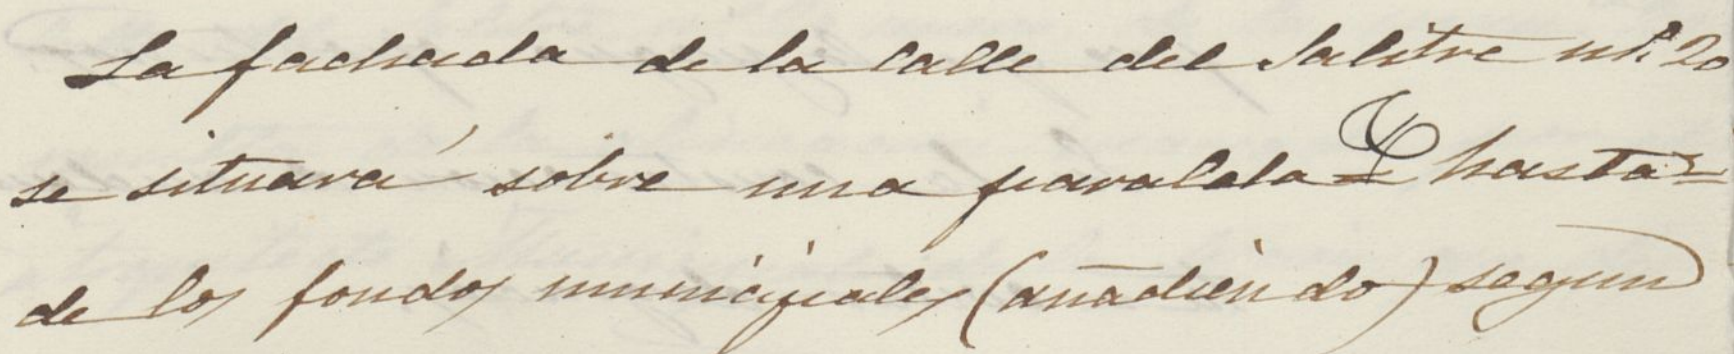 La fachada de la calle del Salitre nº 20
se situará sobre una paralela & hasta
de los fondos municipales (añadiendo) segun